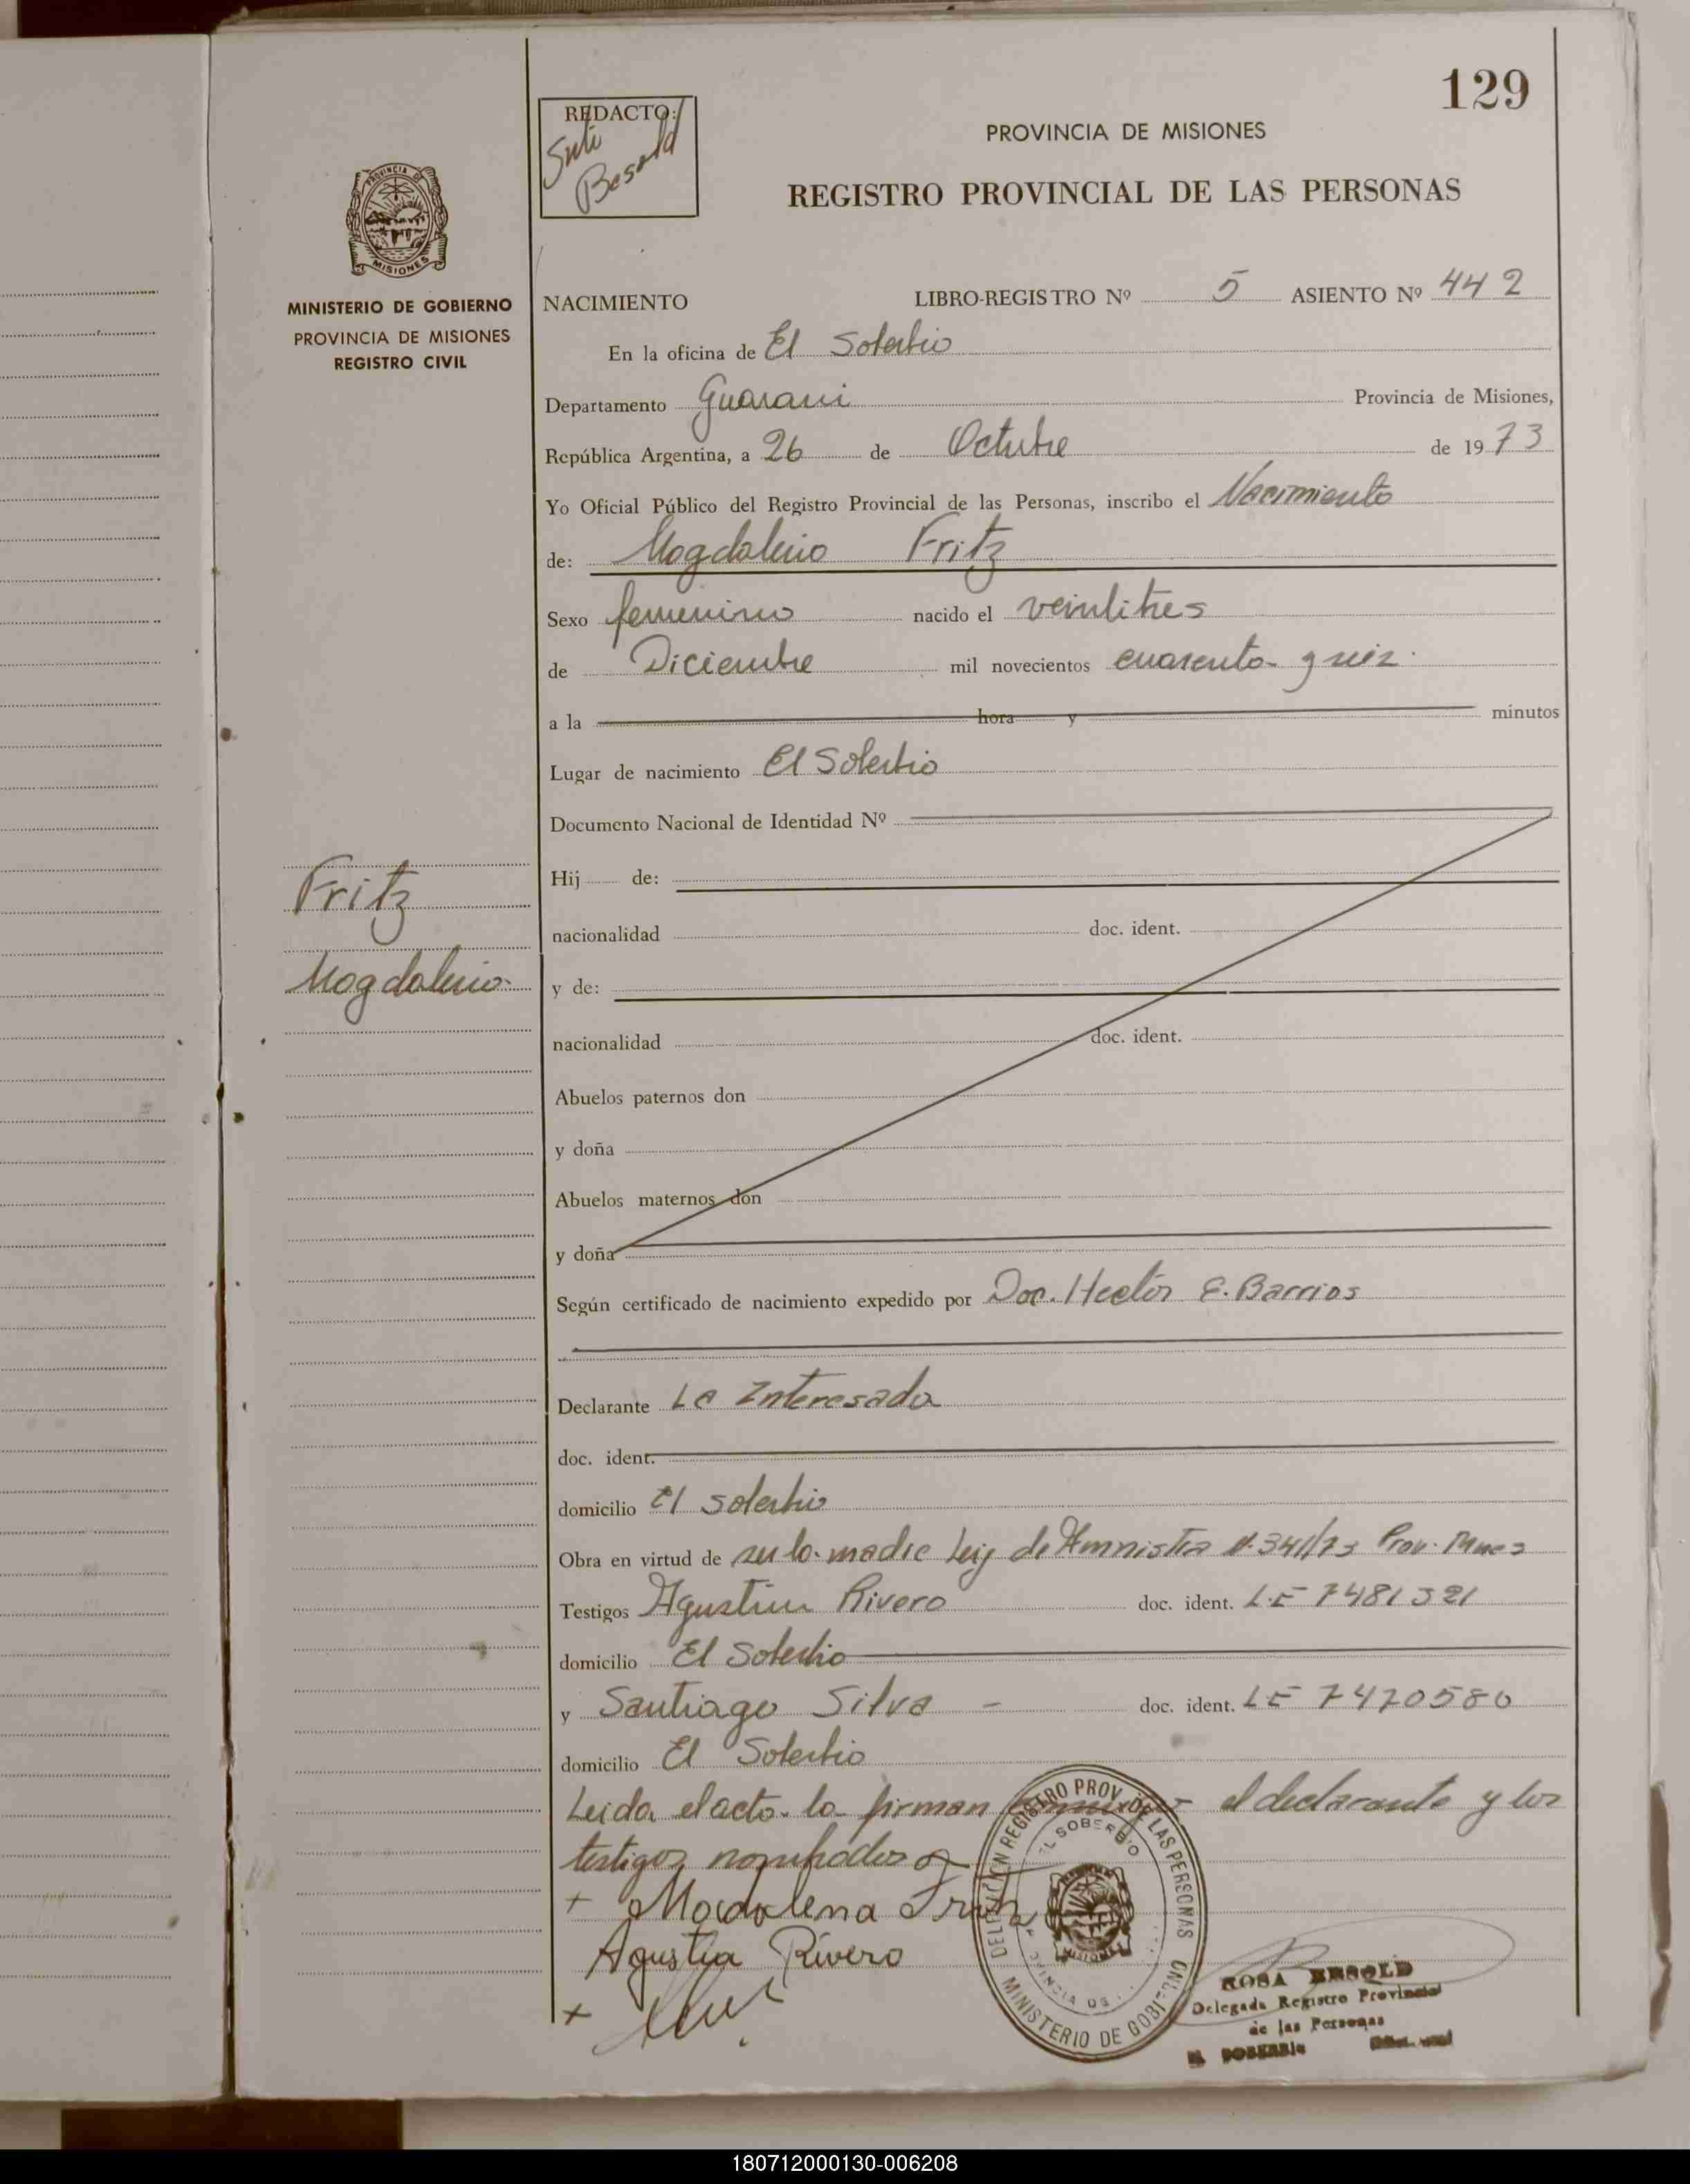 129
REDACTO:
Suli
Besold
PROVINCIA DE MISIONES
REGISTRO PROVINCIAL DE LAS PERSONAS
PROVINCIA DE
MISIONES
MINISTERIO DE GOBIERNO
PROVINCIA DE MISIONES
REGISTRO CIVIL
NACIMIENTO LIBRO-REGISTRO Nº 5 ASIENTO Nº 442
En la oficina de El Soberbio
Departamento Guarani Provincia de Misiones,
República Argentina, a 26 de Octubre de 1973
Yo Oficial Público del Registro Provincial de las Personas, inscribo el Nacimiento
de: Magdalena Fritz
Sexo femenino nacido el veintitres
de Diciembre mil novecientos cuarenta y seis
a la hora y minutos
Lugar de nacimiento El Soberbio
Documento Nacional de Identidad Nº
Hij de:
Fritz
nacionalidad doc. ident.
Magdalena
y de:
nacionalidad doc. ident.
Abuelos paternos don
y doña
Abuelos maternos don
y doña
Según certificado de nacimiento expedido por Doc. Hector E. Barrios
Declarante La Interesada
doc. ident.
domicilio El Soberbio
Obra en virtud de ser la madre Ley de Amnistia N. 341/73 Prov. Mnes
Testigos Agustin Rivero doc. ident. L.E 7481321
domicilio El Soberbio
y Santiago Silva - doc. ident. LE 7470580
domicilio El Soberbio
Leida el acta la firman el declarante y los
testigos nombrados
+ Magdalena Fritz
Agustin Rivero
+
DELEGACIÓN REGISTRO PROV. DE LAS PERSONAS
EL SOBERBIO
MISIONES
PROVINCIA DE
MINISTERIO DE GOBIERNO
ROSA BESOLD
Delegada Registro Provincial
de las Personas
EL SOBERBIO
180712000130-006208